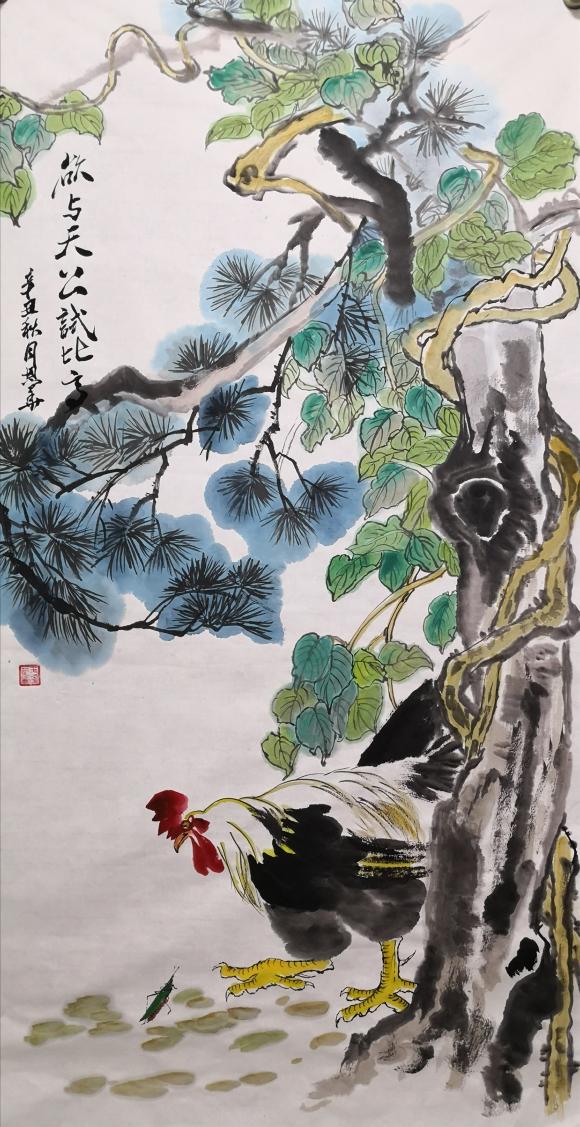 欲与天公試比高
辛丑秋月